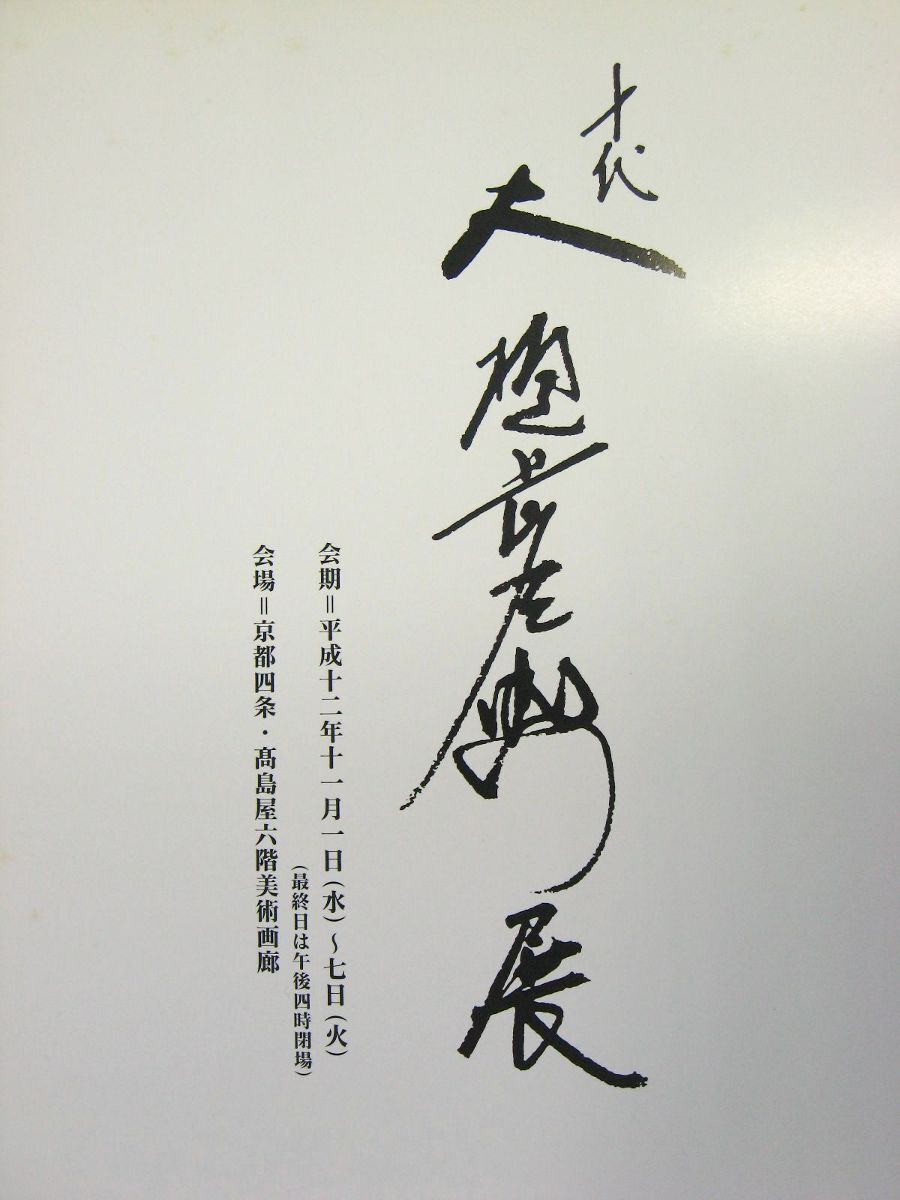 十代
大樋長左衛門展
会期＝平成十二年十一月一日(水)～七日(火)
(最終日は午後四時閉場)
会場＝京都四条・髙島屋六階美術画廊